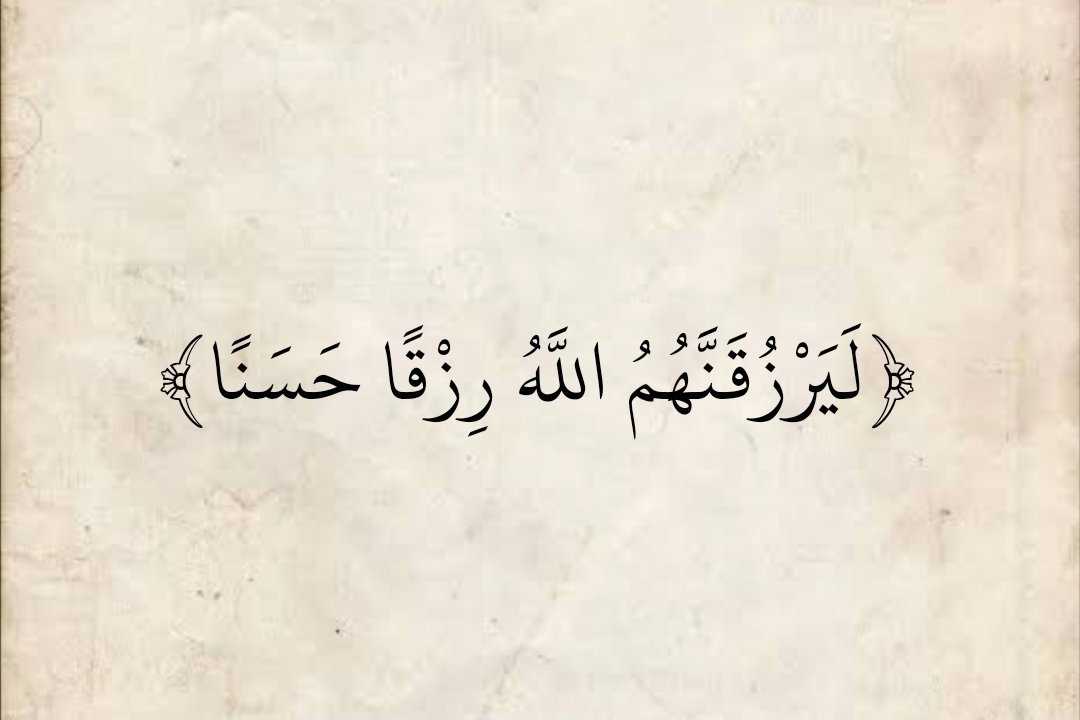 ﴿لَيَرْزُقَنَّهُمُ اللَّهُ رِزْقًا حَسَنًا﴾